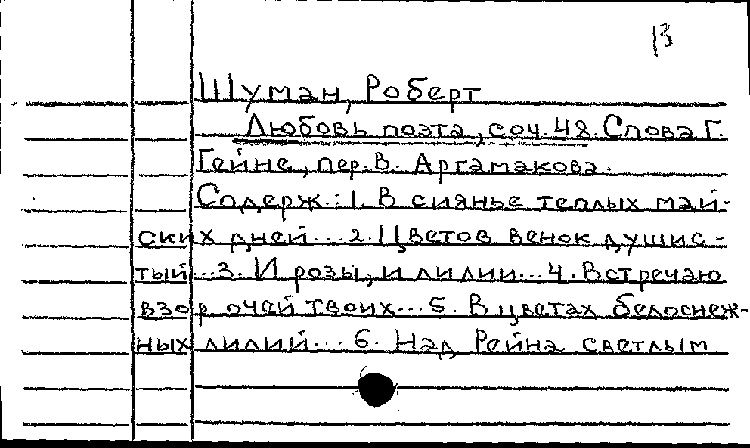 13
Шуман, Роберт
Любовь поэта, соч. 48. Слова Г.
Гейне, пер. В. Аргамакова.
Содерж.: 1. В сиянье теплых май-
ских дней... 2. Цветов венок душис-
тый... 3. И розы, и лилии... 4. Встречаю
взор очей твоих... 5. В цветах белоснеж-
ных лилий... 6. Над Рейна светлым